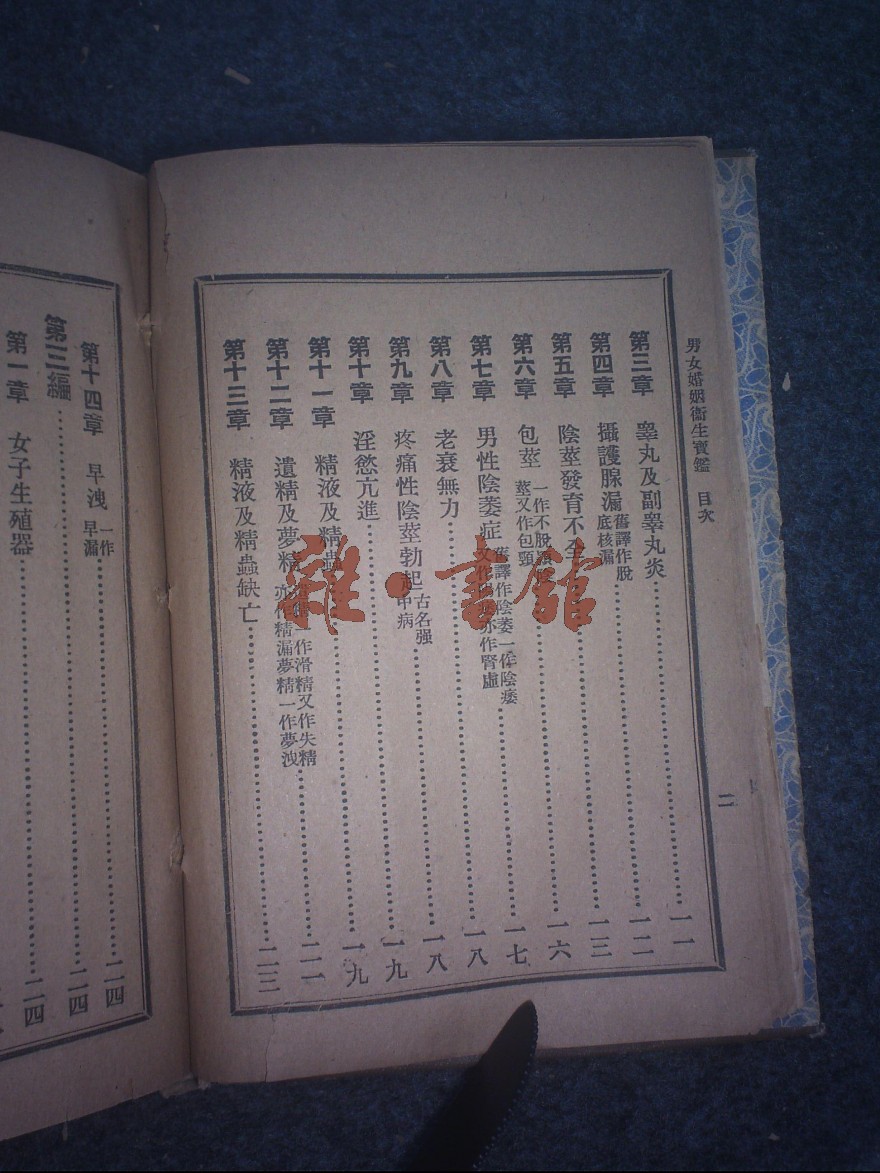 男女婚姻衞生寶鑑 目次
二
第三章 睾丸及副睾丸炎 一一
第四章 攝護腺漏 舊譯作脫底核漏 一二
第五章 陰莖發育不全 一三
第六章 包莖 一作不脫 莖又作包頸 一六
第七章 男性陰萎症 舊譯作陰萎一作陰痿 亦作腎虛 一七
第八章 老衰無力 一八
第九章 疼痛性陰莖勃起 古名强中病 一八
第十章 淫慾亢進 一九
第十一章 精液及精蟲 一九
第十二章 遺精及夢精 一作滑精又作失精 亦作精漏夢精一作夢洩 二一
第十三章 精液及精蟲缺亡 二三
第十四章 早洩 一作早漏 二四
第三編 二四
第一章 女子生殖器 二四
雜·書館